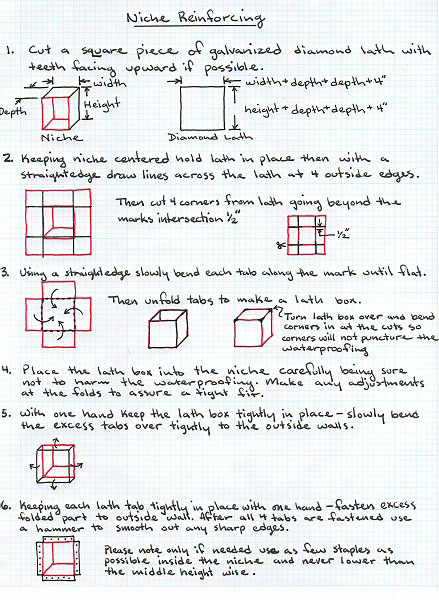 Niche Reinforcing
1. Cut a square piece of galvanized diamond lath with
teeth facing upward if possible.
width
Depth
Height
Niche
width + depth + depth + 4"
height + depth + depth + 4"
Diamond Lath
2. Keeping niche centered hold lath in place then with a
straightedge draw lines across the lath at 4 outside edges.
Then cut 4 corners from lath going beyond the
marks intersection 1/2"
1/2"
3. Using a straightedge slowly bend each tab along the mark until flat.
Then unfold tabs to make a lath box.
Turn lath box over and bend
corners in at the cuts so
corners will not puncture the
waterproofing
4. Place the lath box into the niche carefully being sure
not to harm the waterproofing. Make any adjustments
at the folds to assure a tight fit.
5. With one hand keep the lath box tightly in place - slowly bend
the excess tabs over tightly to the outside walls.
6. Keeping each lath tab tightly in place with one hand - fasten excess
folded part to outside wall. After all 4 tabs are fastened use
a hammer to smooth out any sharp edges.
Please note only if needed use as few staples as
possible inside the niche and never lower than
the middle height wise.